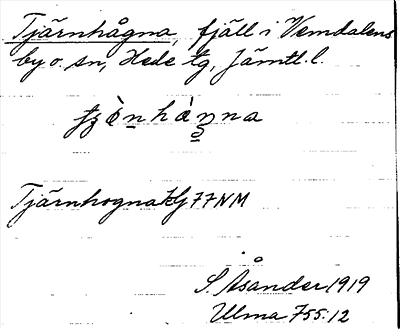 Tjärnhågna, fjäll i Vemdalens
by o. sn, Hede tg, Jämtl. l.
Tjärnhogna kJ 77 NM
S. Åsander 1919
Ulma 755:12